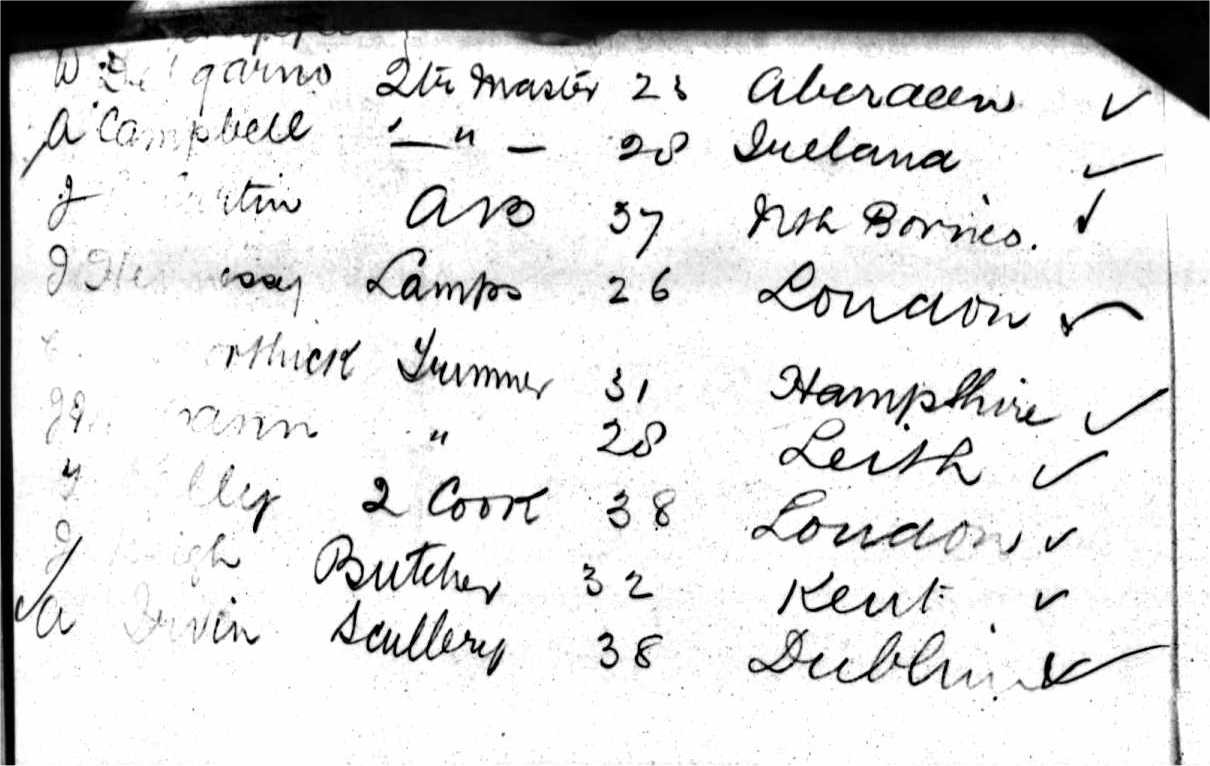 W Dalgarno 2tr Master 23 Aberdeen ✓
A Campbell — " — 28 Ireland ✓
J AB 37 Nth Borneo. ✓
J Hennessy Lamps 26 London ✓
Trimmer 31 Hampshire ✓
" 28 Leith ✓
2 Cook 38 London ✓
Butcher 32 Kent ✓
A Irvin Scullery 38 Dublin ✓